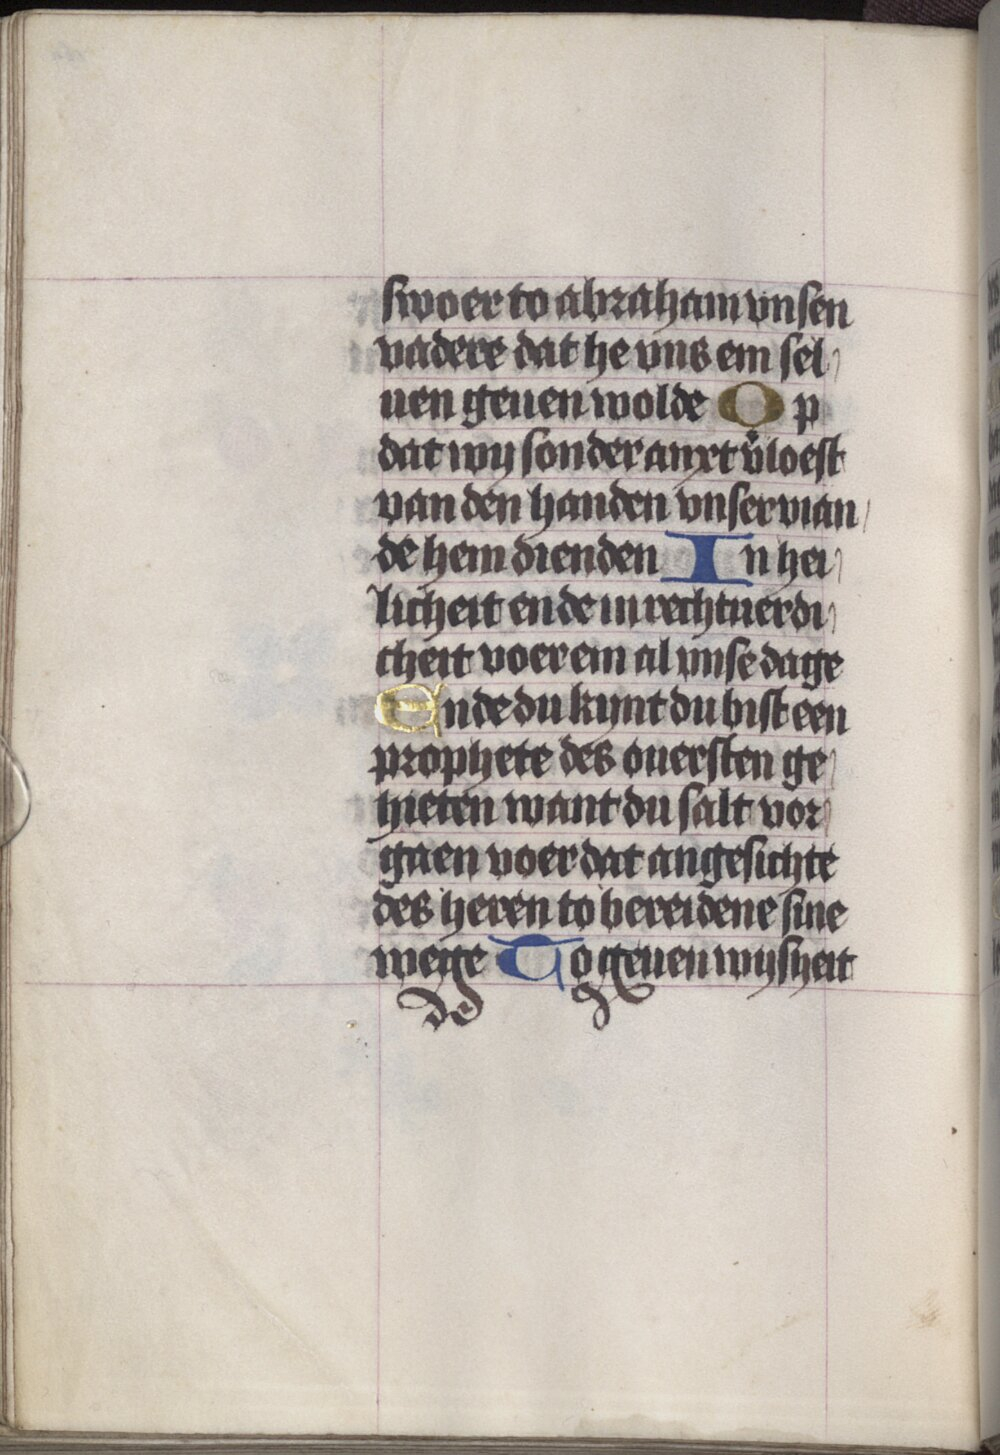 swoer to abraham vnsen
vadere dat he vns em sel
uen geuen wolde Op
dat wy sonder anxt v̄loest
van den handen vnser vian
de hem dienden In hei
licheit ende in rechtuerdi
cheit voer em al vnse dage
Ende du kynt du bist een
prophete des ouersten ge
hieten want du salt vor
gaen voer dat angesichte
des heren to bereidene sine
wege To geuen wysheit